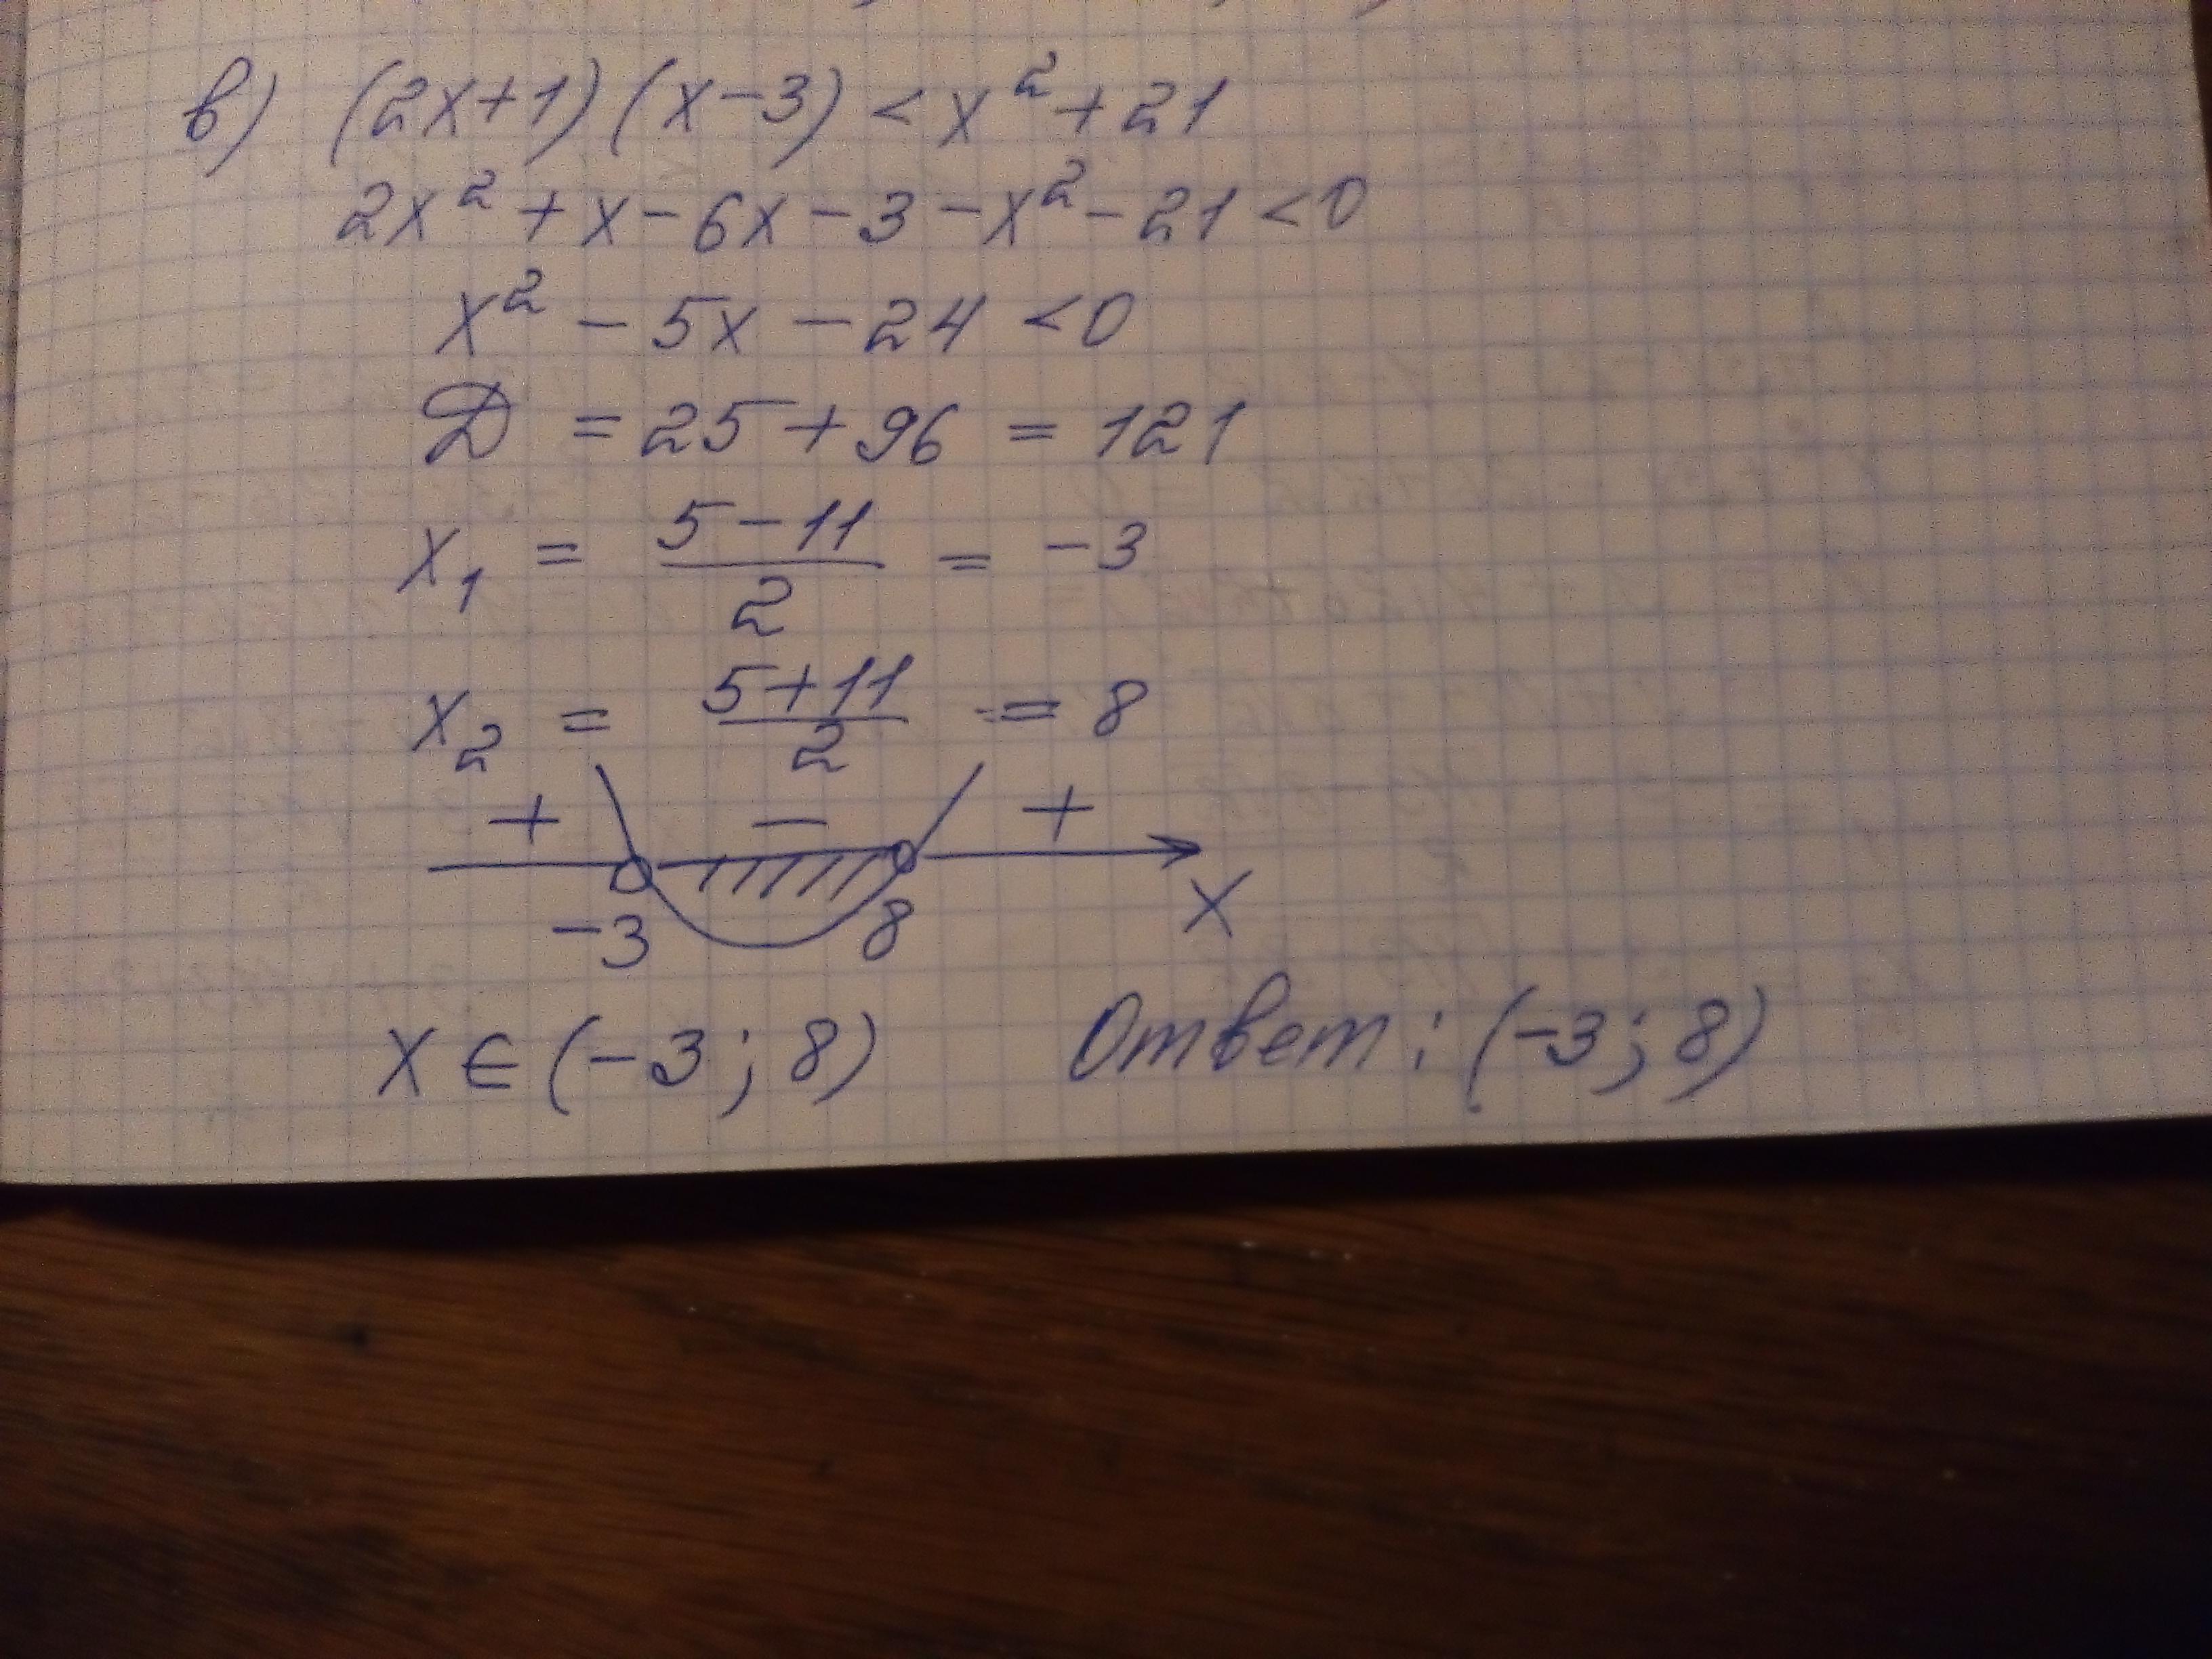 в) (2x+1)(x-3)<x²+21
2x²+x-6x-3-x²-21<0
x²-5x-24<0
D=25+96=121
x₁ = (5-11)/2 = -3
x₂ = (5+11)/2 = 8
+ - +
-3 8 X
X∈(-3;8) Ответ: (-3;8)